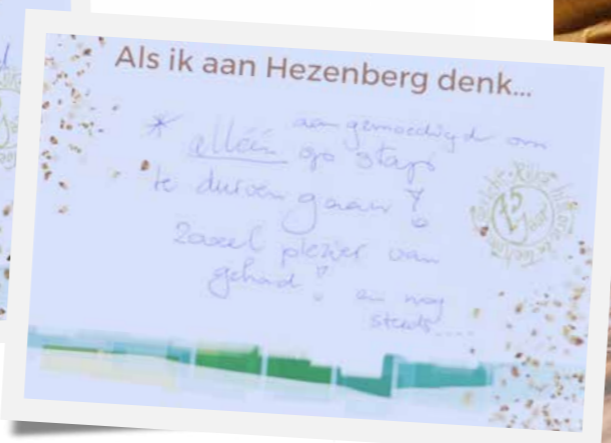 Als ik aan Hezenberg denk...
* aangemoedigd om
alléén op stap
te durven gaan!
Zoveel plezier van
gehad! en nog
steeds....